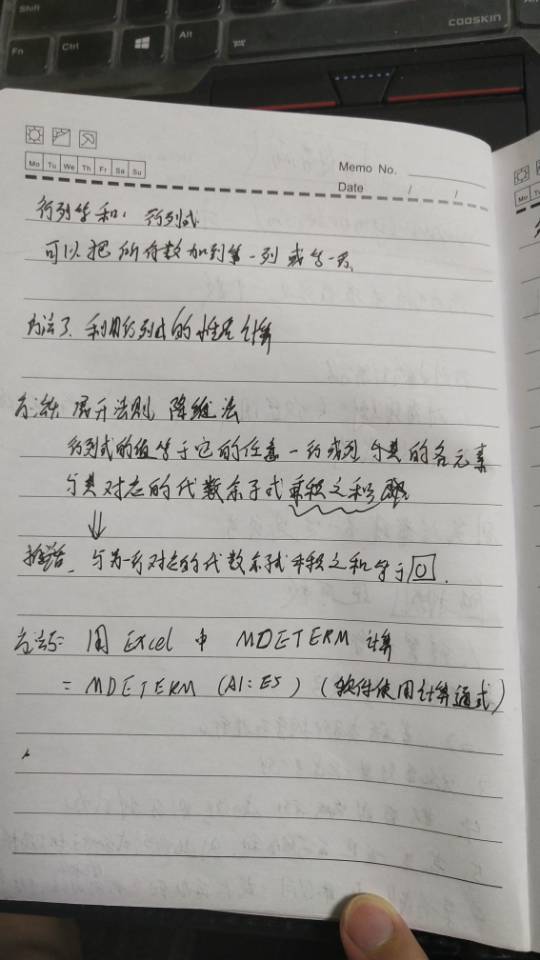 Shift
COOSKIN
Fn Ctrl Alt
Memo No.
Mo Tu We Th Fr Sa Su
Date / /
行列等和 行列式
可以把所有数加到第一列或第一行
方法3 利用行列式的性质计算
方法4 展开法则 降维法
行列式的值等于它的任意一行或列与其的各元素
与其对应的代数余子式乘积之和
推论 与另一行对应的代数余子式乘积之和等于0.
方法5: 用 Excel 中 MDETERM 计算
= MDETERM (A1:E5) (软件使用计算通式)